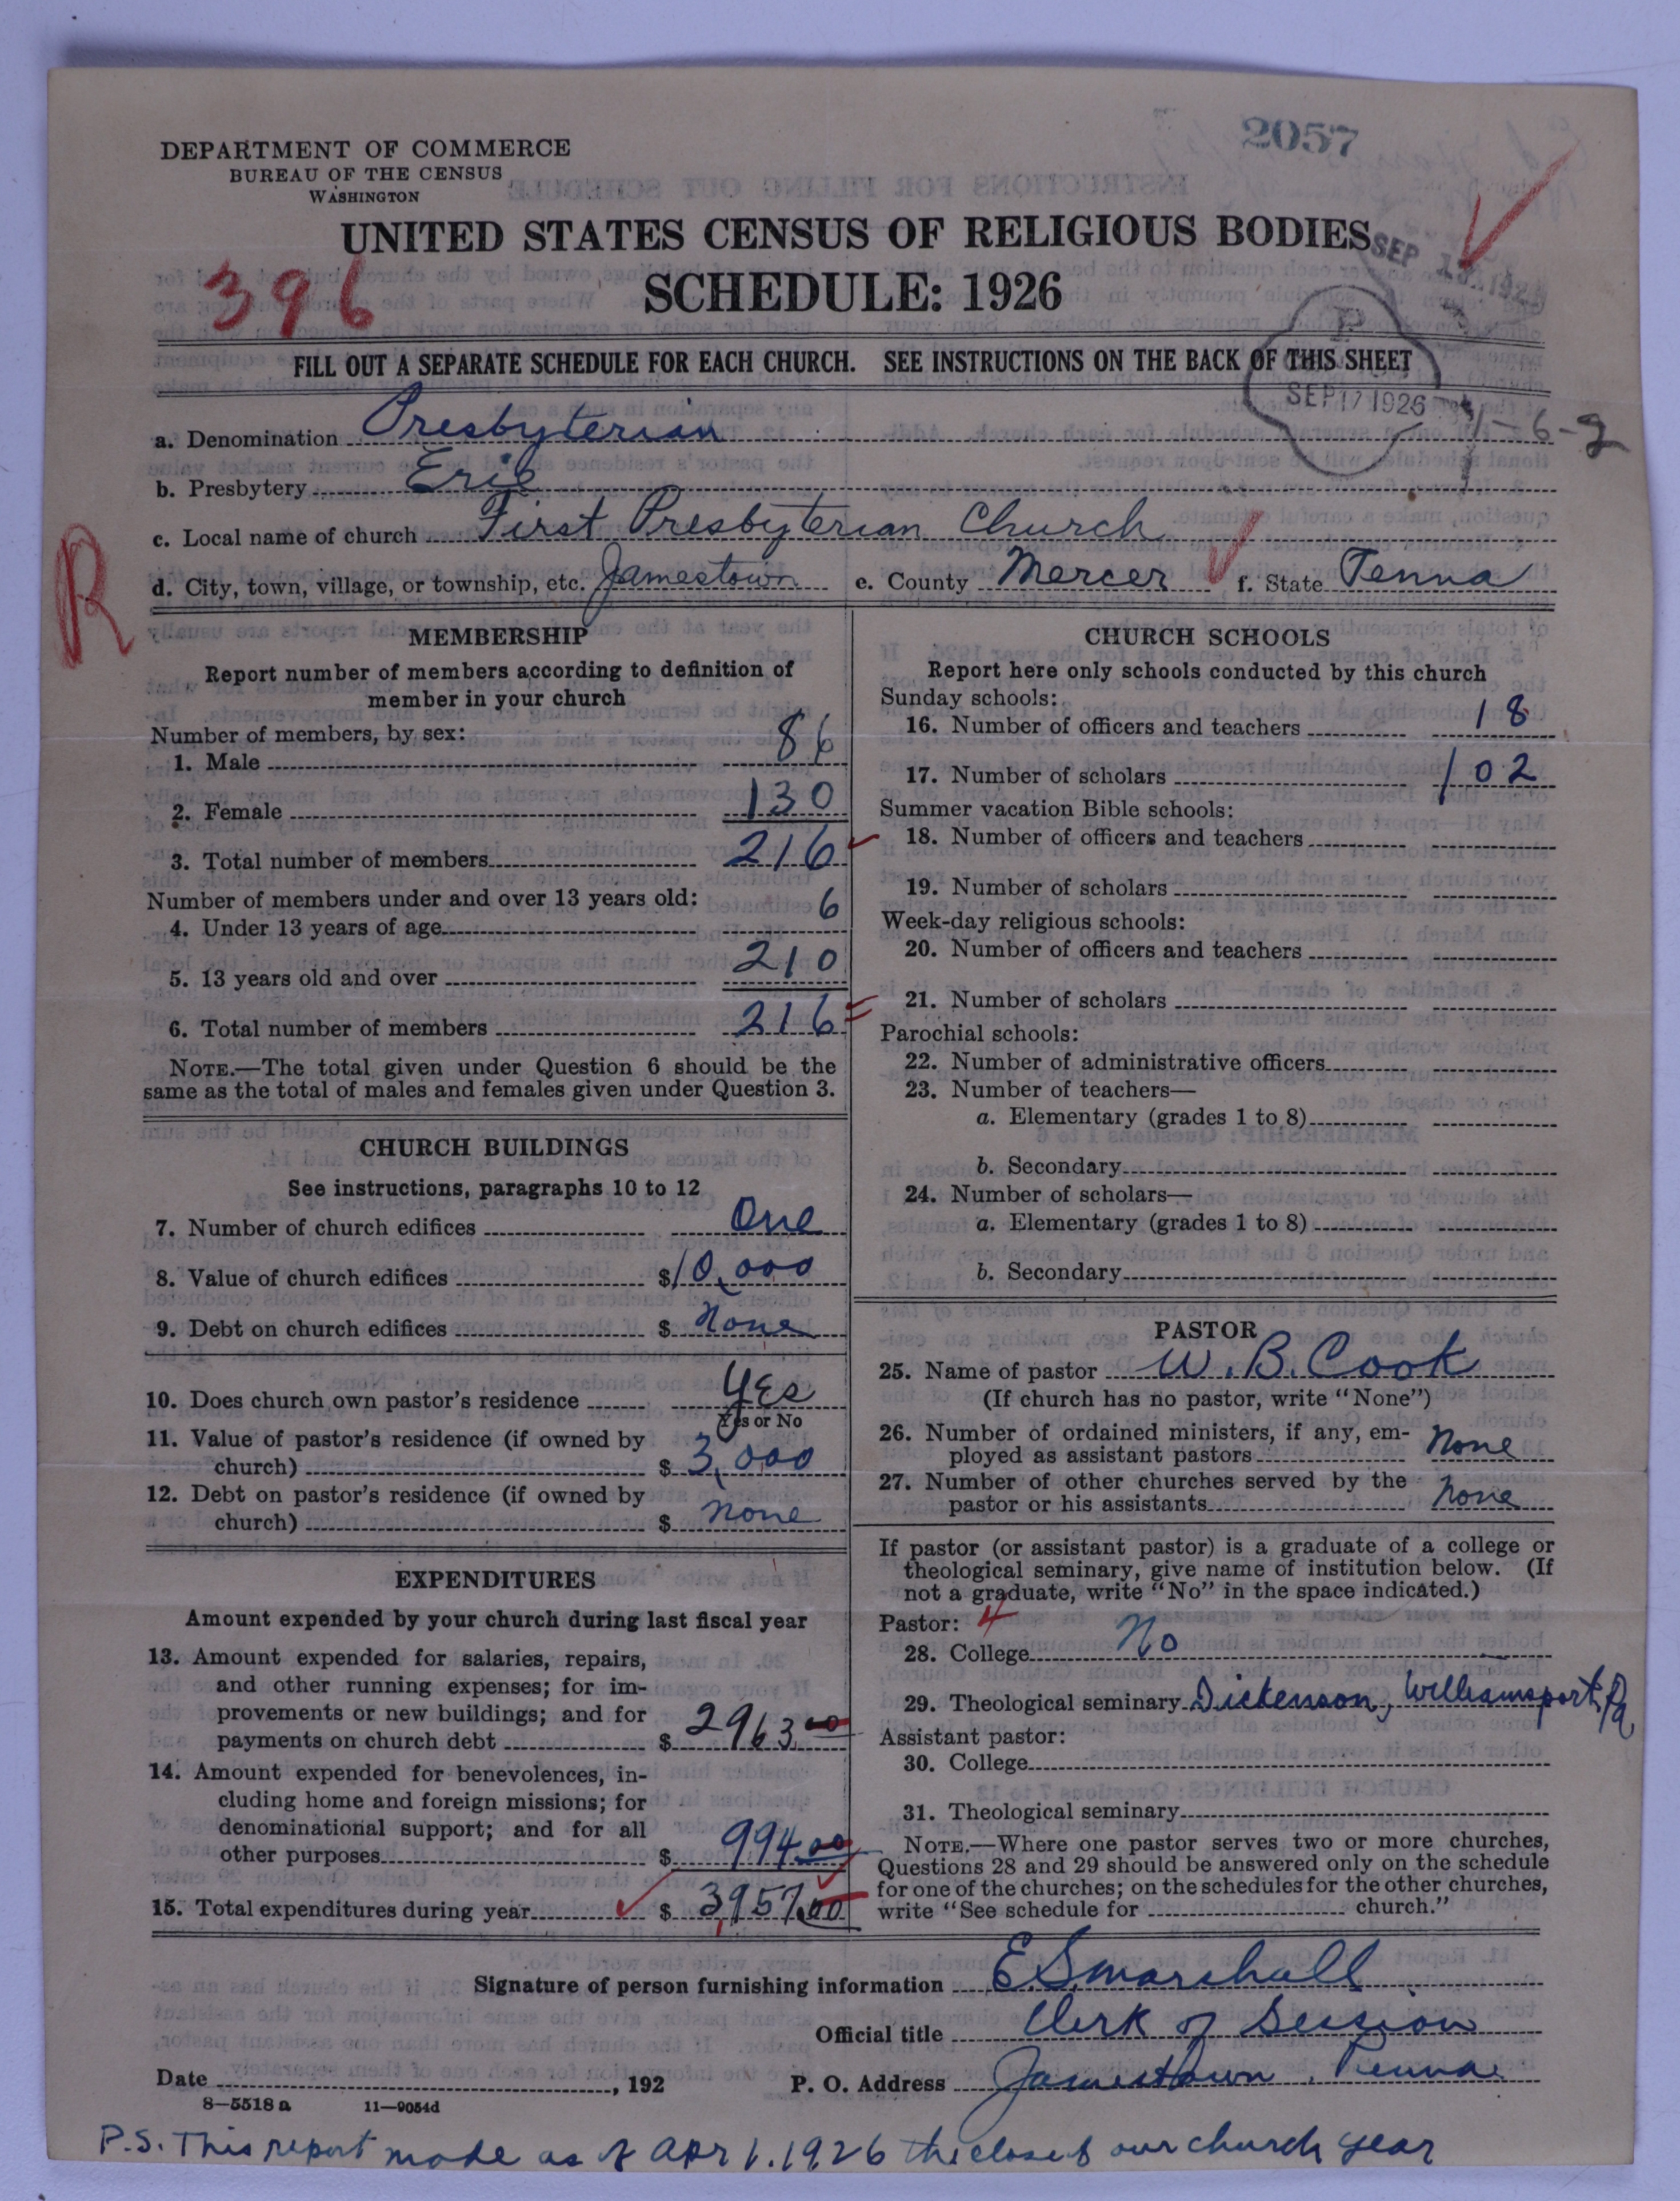 2057
DEPARTMENT OF COMMERCE
BUREAU OF THE CENSUS
WASHINGTON
UNITED STATES CENSUS OF RELIGIOUS BODIES
SEP 13 1926
396
SCHEDULE: 1926
P
FILL OUT A SEPARATE SCHEDULE FOR EACH CHURCH. SEE INSTRUCTIONS ON THE BACK OF THIS SHEET
SEP 17 1926
a. Denomination Presbyterian
b. Presbytery Erie
c. Local name of church First Presbyterian Church
R
d. City, town, village, or township, etc. Jamestown e. County Mercer f. State Penna
MEMBERSHIP
Report number of members according to definition of
member in your church
Number of members, by sex:
1. Male 86
2. Female 130
3. Total number of members 216
Number of members under and over 13 years old:
4. Under 13 years of age 6
5. 13 years old and over 210
6. Total number of members 216
NOTE.—The total given under Question 6 should be the
same as the total of males and females given under Question 3.
CHURCH BUILDINGS
See instructions, paragraphs 10 to 12
7. Number of church edifices One
8. Value of church edifices $10,000
9. Debt on church edifices $ None
10. Does church own pastor's residence Yes
Yes or No
11. Value of pastor's residence (if owned by
church) $ 3,000
12. Debt on pastor's residence (if owned by
church) $ none
EXPENDITURES
Amount expended by your church during last fiscal year
13. Amount expended for salaries, repairs,
and other running expenses; for im-
provements or new buildings; and for
payments on church debt $ 2963.00
14. Amount expended for benevolences, in-
cluding home and foreign missions; for
denominational support; and for all
other purposes $ 994.00
15. Total expenditures during year $ 3957.00
CHURCH SCHOOLS
Report here only schools conducted by this church
Sunday schools:
16. Number of officers and teachers 18
17. Number of scholars 102
Summer vacation Bible schools:
18. Number of officers and teachers
19. Number of scholars
Week-day religious schools:
20. Number of officers and teachers
21. Number of scholars
Parochial schools:
22. Number of administrative officers
23. Number of teachers—
a. Elementary (grades 1 to 8)
b. Secondary
24. Number of scholars—
a. Elementary (grades 1 to 8)
b. Secondary
PASTOR
25. Name of pastor W. B. Cook
(If church has no pastor, write "None")
26. Number of ordained ministers, if any, em-
ployed as assistant pastors None
27. Number of other churches served by the
pastor or his assistants None
If pastor (or assistant pastor) is a graduate of a college or
theological seminary, give name of institution below. (If
not a graduate, write "No" in the space indicated.)
Pastor: 4
28. College No
29. Theological seminary Dickenson, Williamsport, Pa
Assistant pastor:
30. College
31. Theological seminary
NOTE.—Where one pastor serves two or more churches,
Questions 28 and 29 should be answered only on the schedule
for one of the churches; on the schedules for the other churches,
write "See schedule for church."
Signature of person furnishing information E. S. Marshall
Official title Clerk of Session
Date , 192 P. O. Address Jamestown, Penna
8—5518 a 11—9054d
P.S. This report made as of Apr 1. 1926 the close of our church year